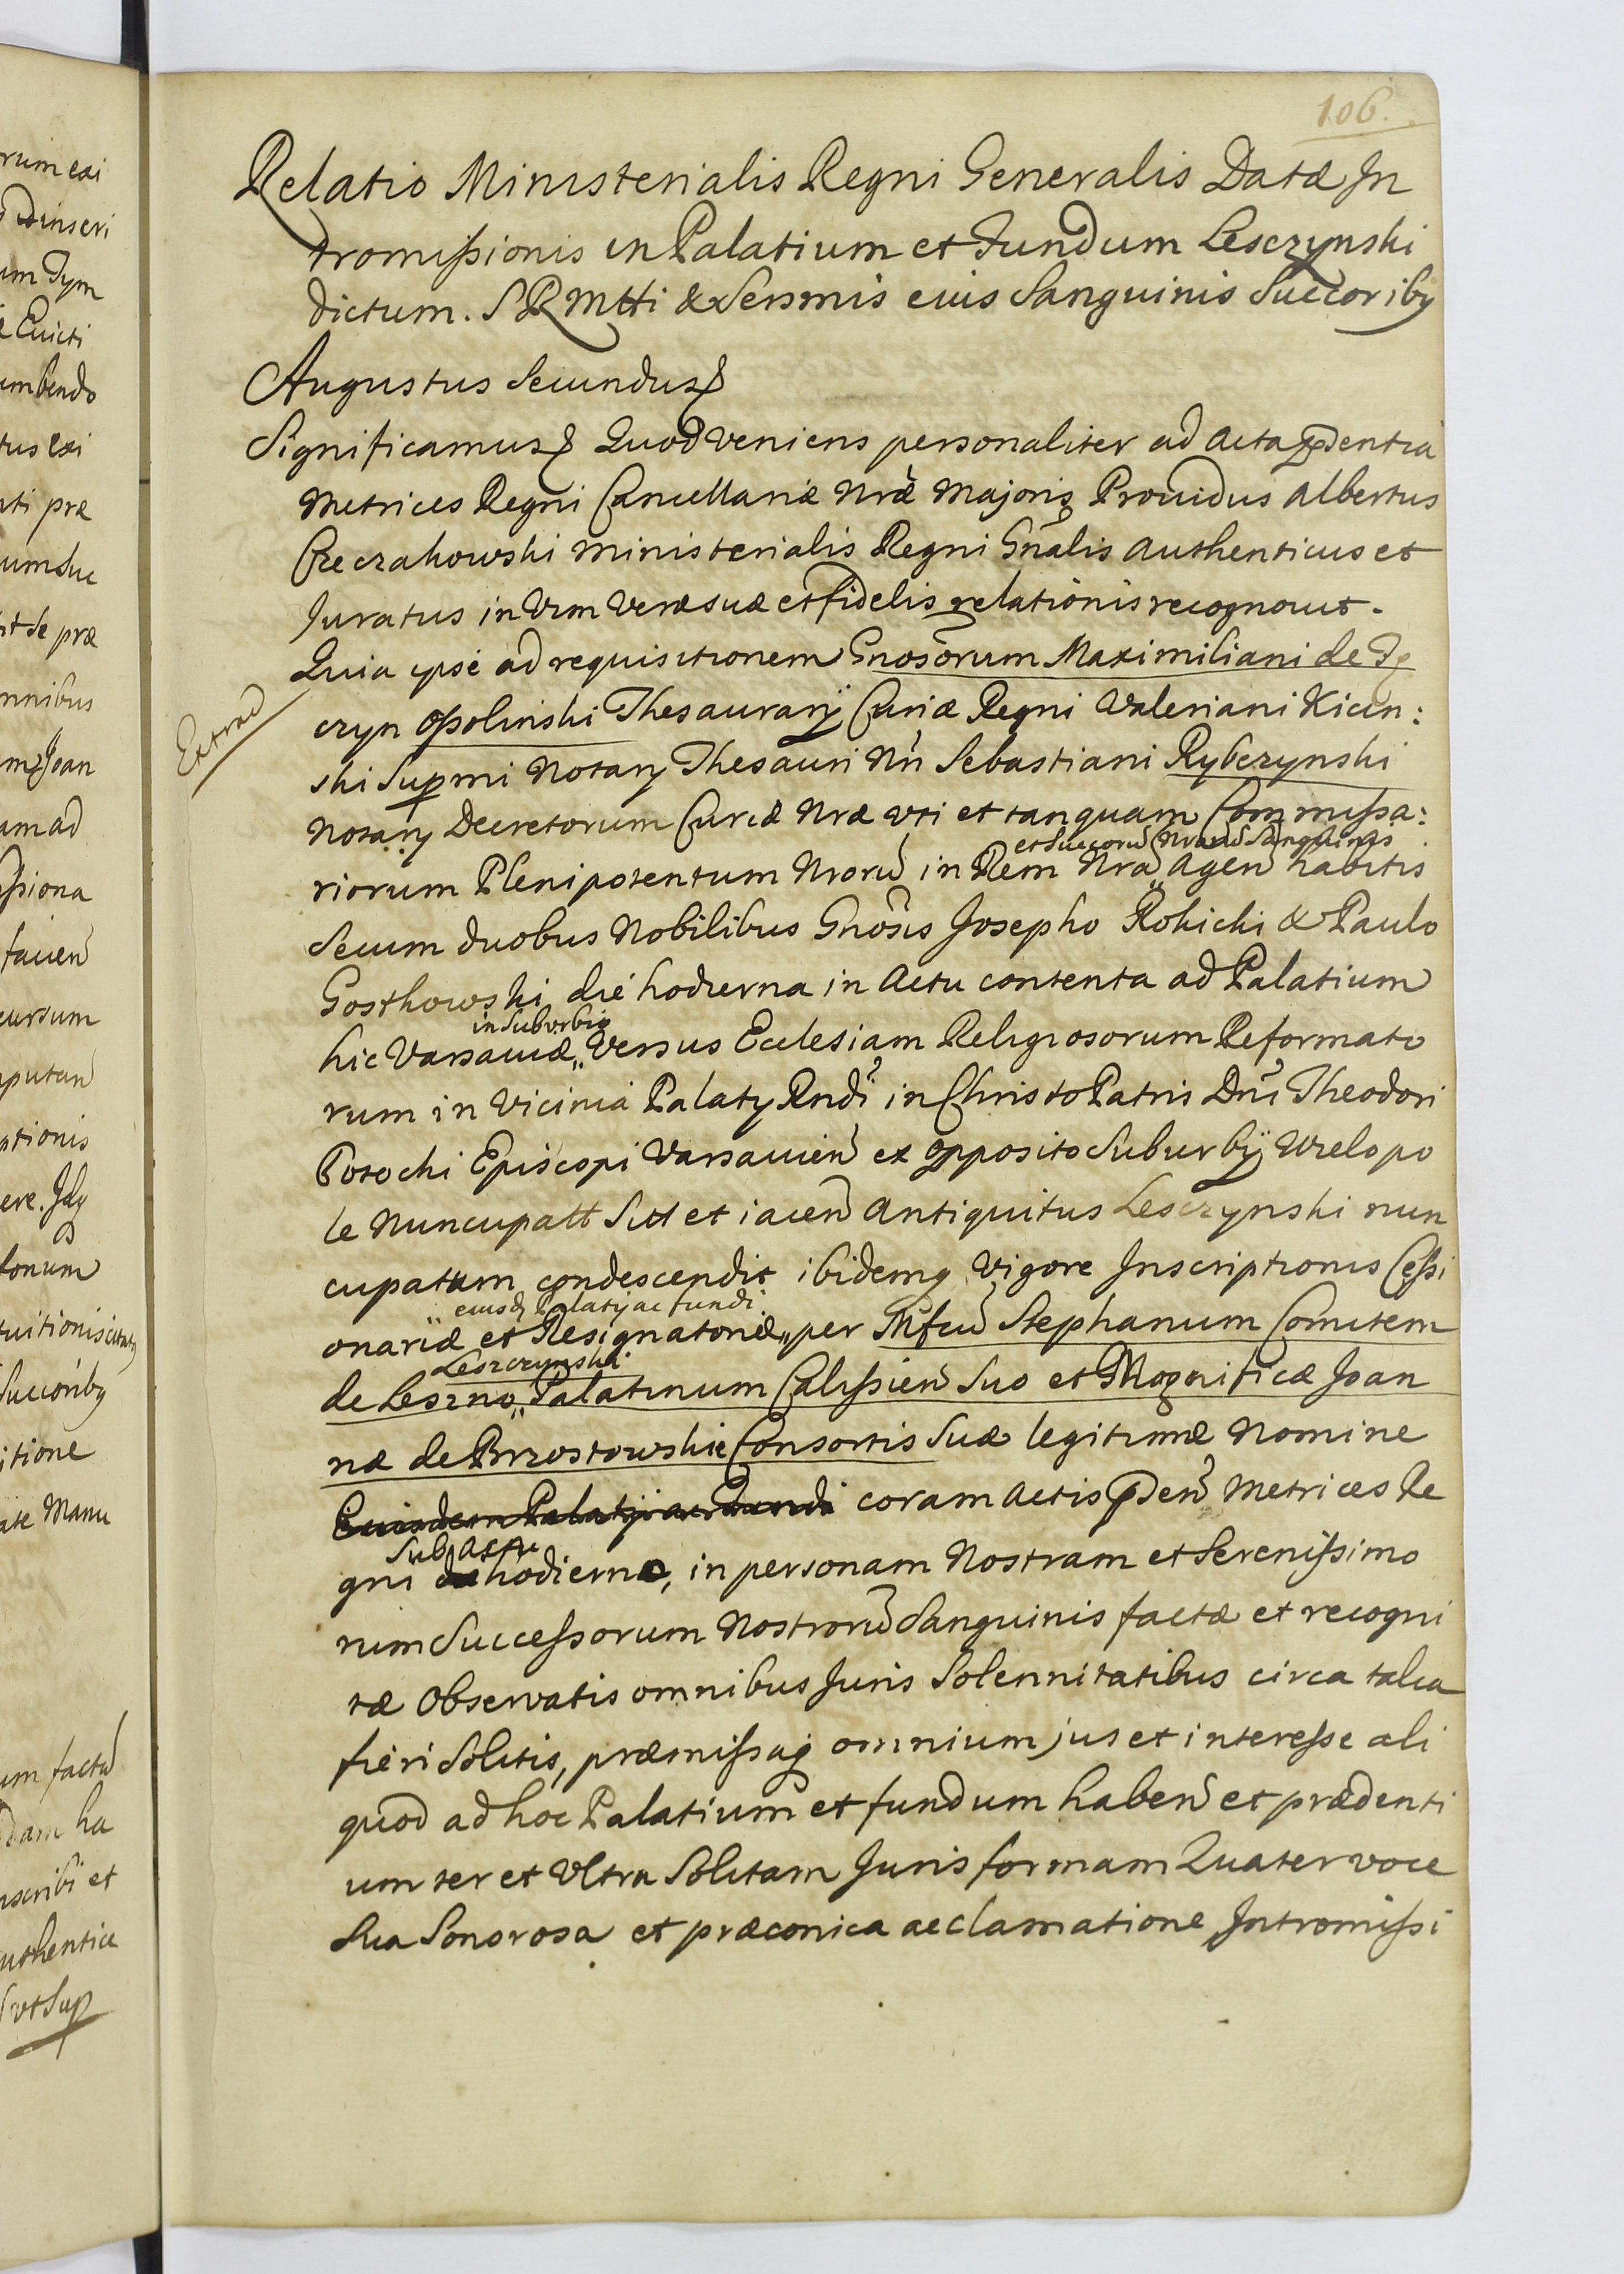 106.
Relatio Ministerialis Regni Generalis Datæ In
tromissionis in Palatium et Fundum Lesczynski
dictum. S R Mtti & Sersmis eius Sanguinis Succoribq
Augustus Secundus
Significamus Quod veniens personaliter ad Acta pdentia
Metrices Regni Cancellariæ Nræ Majoris Providus Albertus
Czeczakowski Ministerialis Regni Gnalis Authenticus et
Juratus in Vim Veræ suæ et fidelis relationis recognovit.
Quia ipse ad requisitionem Gnosorum Maximiliani de Tę
czyn Ossolinski Thesaurarij Curiæ Regni Valeriani Kicin:
Extrad
ski Supmi Notarij Thesauri Nri Sebastiani Rybczynski
Notarij Decretorum Curiæ Nræ uti et tanquam Commissa:
et Succorū Nrorū Sanguinis
riorum Plenipotentum Nrorū in Rem Nra Agen habitis
Secum duobus Nobilibus Gnosis Josepho Rokicki & Paulo
Gostkowski die hodierna in Actu contenta ad Palatium
in Suburbio
hic Varsaviæ Versus Ecclesiam Religiosorum Reformato
rum in Vicinia Palatij Rndi in Christo Patris Dni Theodori
Potocki Episcopi Varsavien ex opposito Suburbij Wielopo
le Nuncupatt Sitt et iacen Antiquitus Lesczynski nun
cupatum condescendit ibidemq Vigore Inscriptionis Cessi
eiusd Palatij ac fundi
onariæ et Resignatoriæ per Mfcū Stephanum Comitem
Leszczynski
de Leszno Palatinum Calissien Suo et Magnificæ Joan
næ de Brzostowskie Consortis Suæ legitimæ Nomine
Eiusdem Palatij ac Fundi coram Actis pden Metrices Re
Sub Actu
gni hodierno, in personam Nostram et Serenissimo
rum Successorum Nostrorū Sanguinis factæ et recogni
tæ Observatis omnibus Juris Solennitatibus circa talia
fieri Solitis, præmissaq omnium jus et interesse ali
quod ad hoc Palatium et fundum haben et prædenti
um ter et Ultra Solitam Juris formam Quater voce
Sua Sonorosa et præconica acclamatione Intromissi